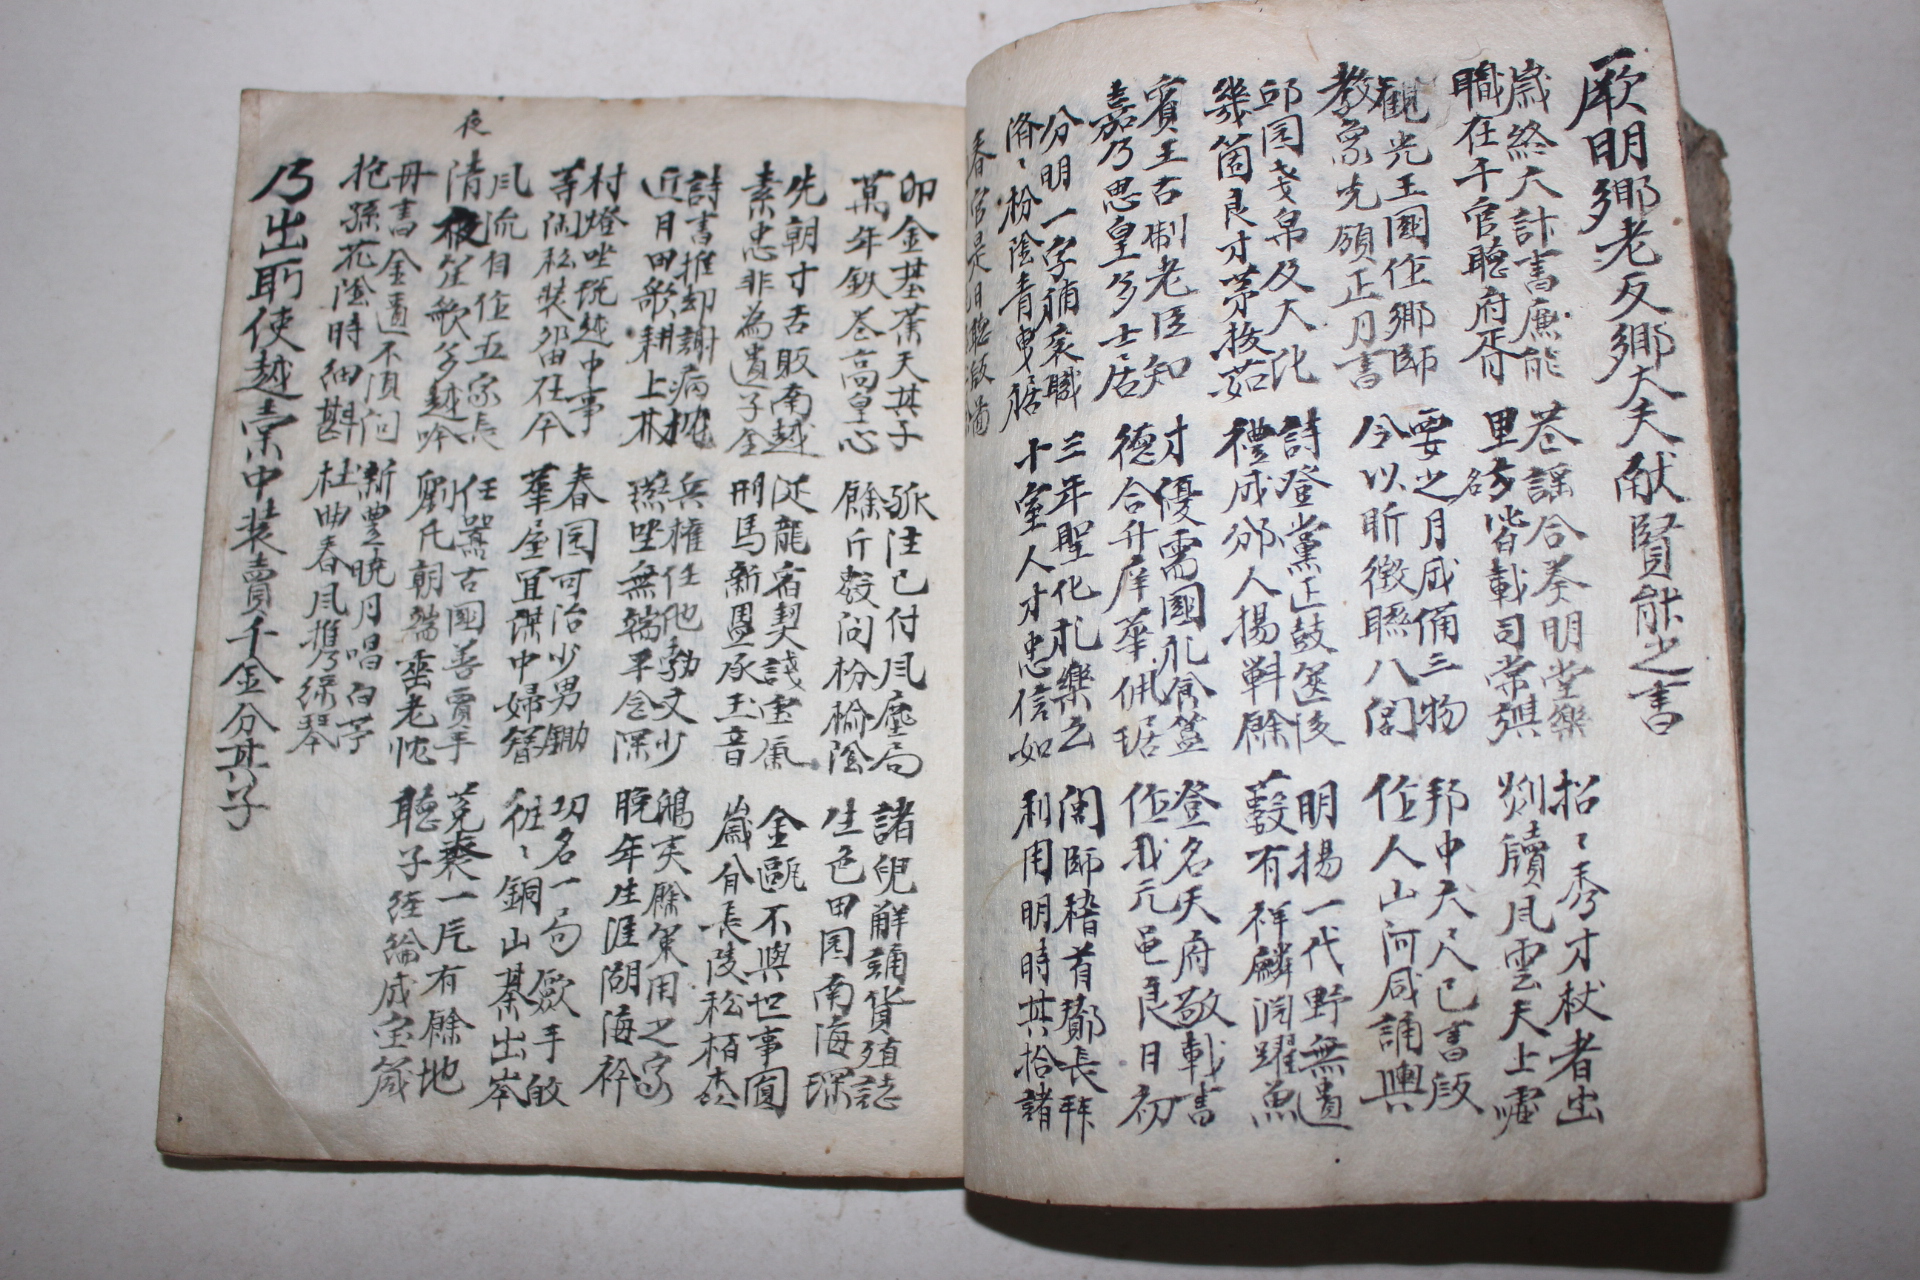 厥明鄉老及鄉大夫献賢能之書
歲終大計書廉能
職在千官聽府胥
觀光王國作鄉師
教象先頒正月書
邱园戔帛及大化
幾箇良才茅拔茹
賓王古制老臣知
嘉乃思皇多士居
分明一字補袞職
濟〻枌陰青曳裾
春官是日聽
巷謠合奏明堂樂
里 皆載司常旟
要之月成備三物
今以昕徵聯八閭
詩登黨正鼓篋後
禮成鄉人揚觶餘
才優需國礼食簋
德合升庠華佩琚
三年聖化礼樂云
十室人才忠信如
招〻秀才杖者出
剡牘風雲天上噓
邦中大尺已書版
作人山河咸誦輿
明揚一代野無遺
藪有祥麟淵躍魚
登名天府敬載書
作我元邑良日初
閭師稽首酇長拜
利用明時其拾諸
卯金基業天其子
萬年 巷高皇心
先朝寸舌販南越
素忠非為遺子金
詩書推却謝病枕
近月田歌耕上林
村燈坐說越中事
等閑私裝留在今
風流自作五家長
清夜笙歌多越吟
夜
丹書金遺不須问
抱孫花陰時細斟
孤注已付風塵局
餘斤 问枌榆陰
龍宿契談虛
刑馬新盟承玉音
兵權任他勃又少
燕坐無端平念深
春园可治少男鋤
羣屋宜謀中婦簪
任囂古國善賈手
劉氏朝端垂老忱
新豊曉月唱白苧
杜曲春風携綠琴
諸兒解誦貨殖誌
生色田园南海琛
金甌不與世事圓
歲有長陵松柏森
鴻夷餘策用之家
晚年生涯湖海衿
功名一局斂手敀
往〻銅山棊出岑
菟裘一片有餘地
聽子經綸成宝箴
乃出所使越橐中裝賣千金分其子